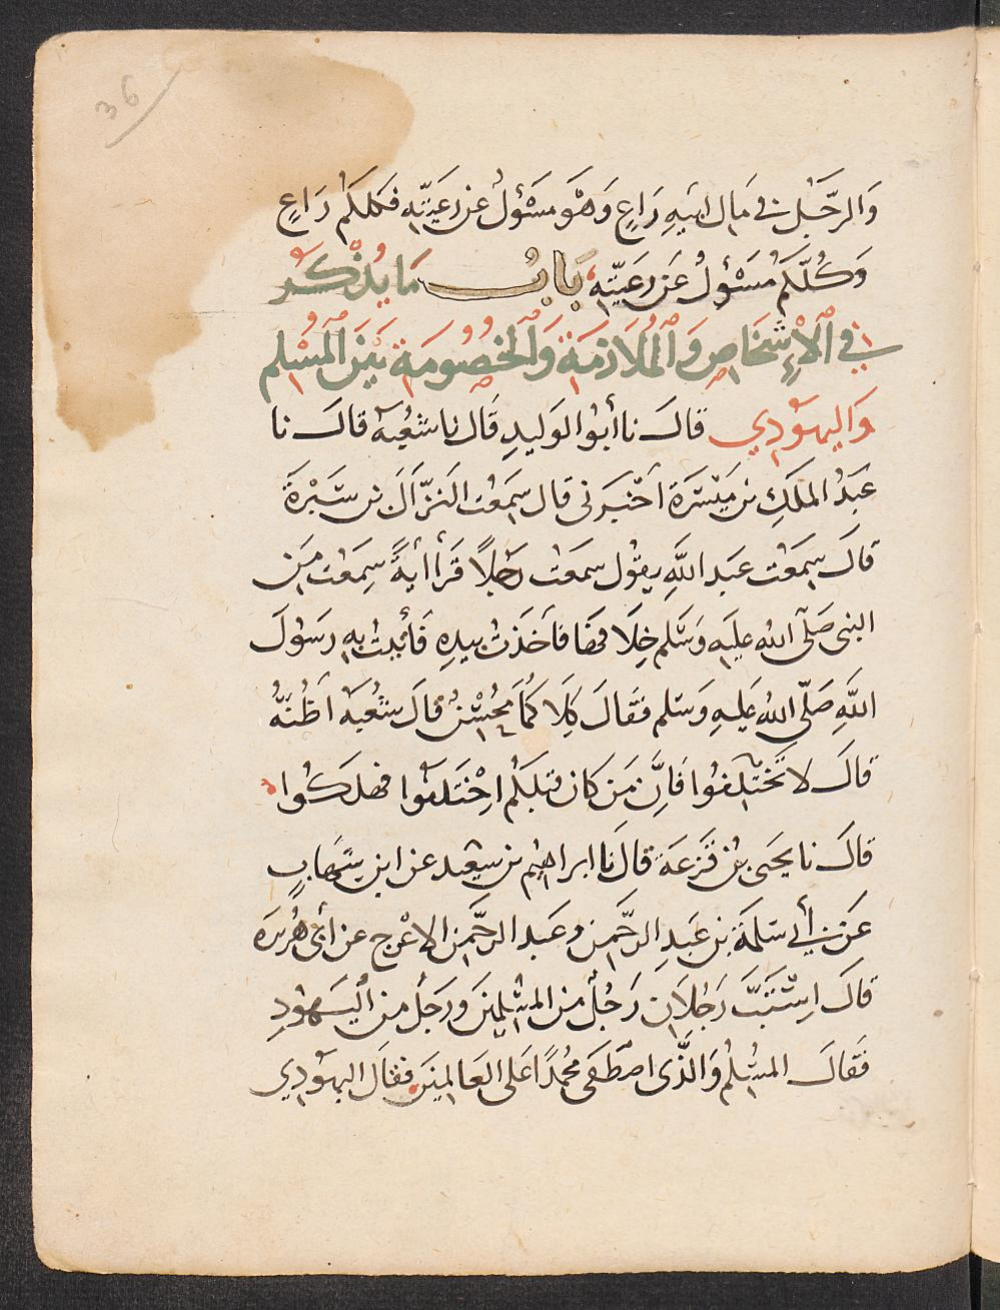 36
وَالرَّجُلُ في مَالِ ابيهِ رَاعٍ وَهْوَ مَسْؤلٌ عن رَعيّتِهِ فكلكُم رَاعٍ
وَكُلّكُم مَسْؤلٌ عَن رَعيّتِهِ بَابُ مَا يُذْكَرُ
في الْإِشْخَاصِ وَالْمُلَازمَة وَالْخُصُومَة بَيْنَ الْمُسْلم
وَاليهُودِي قالَ نا أبُو الوَليدِ قَال نا شُعْبَة قالَ نا
عَبدُ الملكِ بن مَيْسَرَة اخْبَرَنى قال سَمِعْت النزّالَ بن سَبْرةَ
قالَ سَمِعْت عَبدَ اللَّهِ يقُول سَمعْت رَجُلًا قَرأ أيَةً سَمِعْت مِن
النبى صَلّى الله عليه وَسَلم خِلَافهَا فأخَذتُ بيدِهِ فَأتيتُ بهِ رسُولَ
اللَّهِ صَلّى الله عَليهِ وَسَلم فقَالَ كِلَا كُمَا مُحْسِنٌ قالَ شُعْبَة اظُنّهُ
قالَ لا تَخْتَلِفُوا فَإنَّ مَن كان قبلكُم اخْتَلفُوا فهلكُوا
قالَ نا يَحيَى بْن قَزعَة قالَ نَا ابراهِيم بن سعْيد عن ابن شهَابٍ
عَن أبي سَلمَة بن عَبدِ الرحَّمن وعَبد الرحَّمن الاعْرج عن أبى هُرَيرَة
قالَ اسْتَبَّ رَجُلَان رَجُلٌ من المسْلِمينَ وَرجُل من اليَهُودِ
فَقَالَ المسْلم وَالذّى اصْطَفَى مُحمّدًا عَلى العَالمينَ فقالَ اليهُودِي